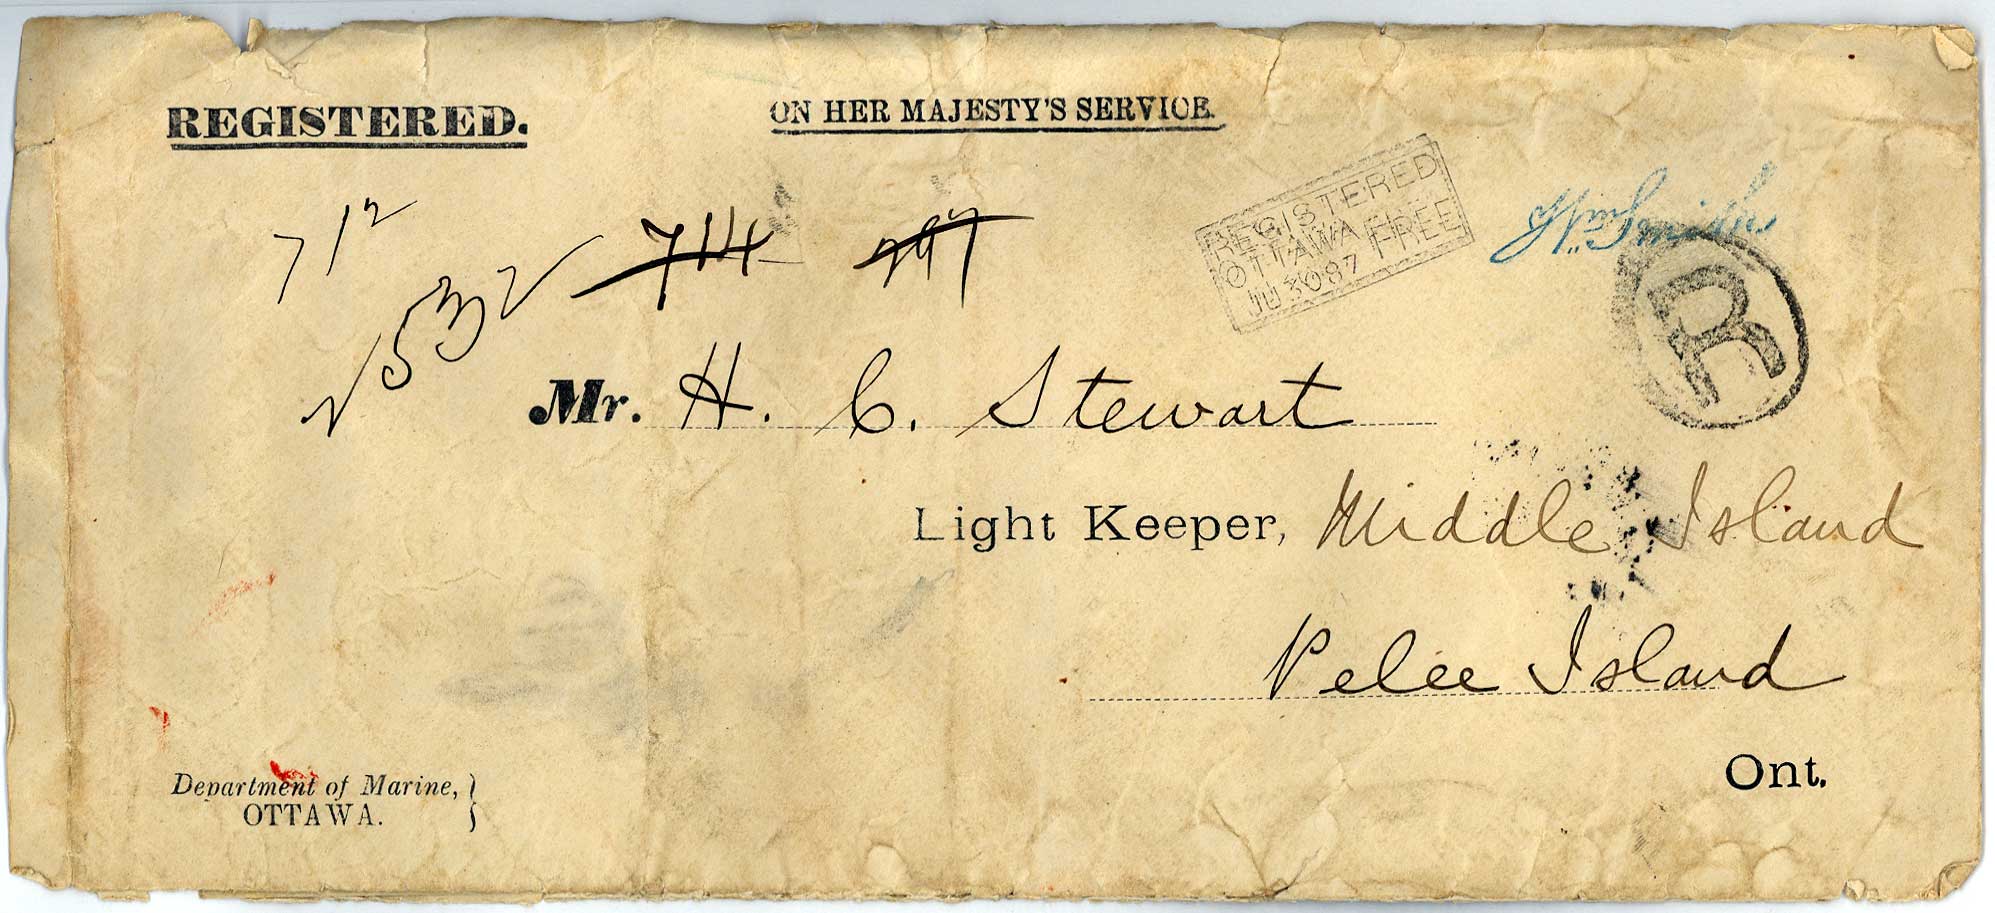 REGISTERED.
ON HER MAJESTY'S SERVICE.
REGISTERED
OTTAWA FREE
JU 30 87
Wm Smith
R
712
532
714
297
Mr. H. C. Stewart
Light Keeper, Middle Island
Pelee Island
Ont.
Department of Marine,
OTTAWA.